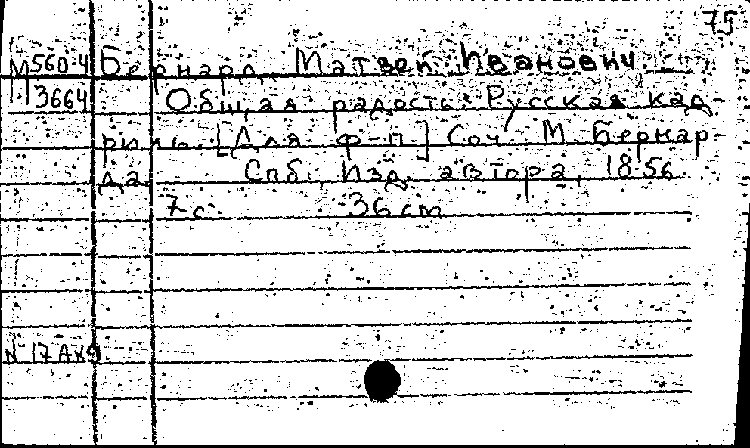 75
М 560-4 Бернард, Матвей Иванович
3664 Общая радость: Русская кад-
риль. [Для ф-п.] Соч. М. Бернар-
да. Спб., Изд. автора, 1856.
7 с. 36 cm